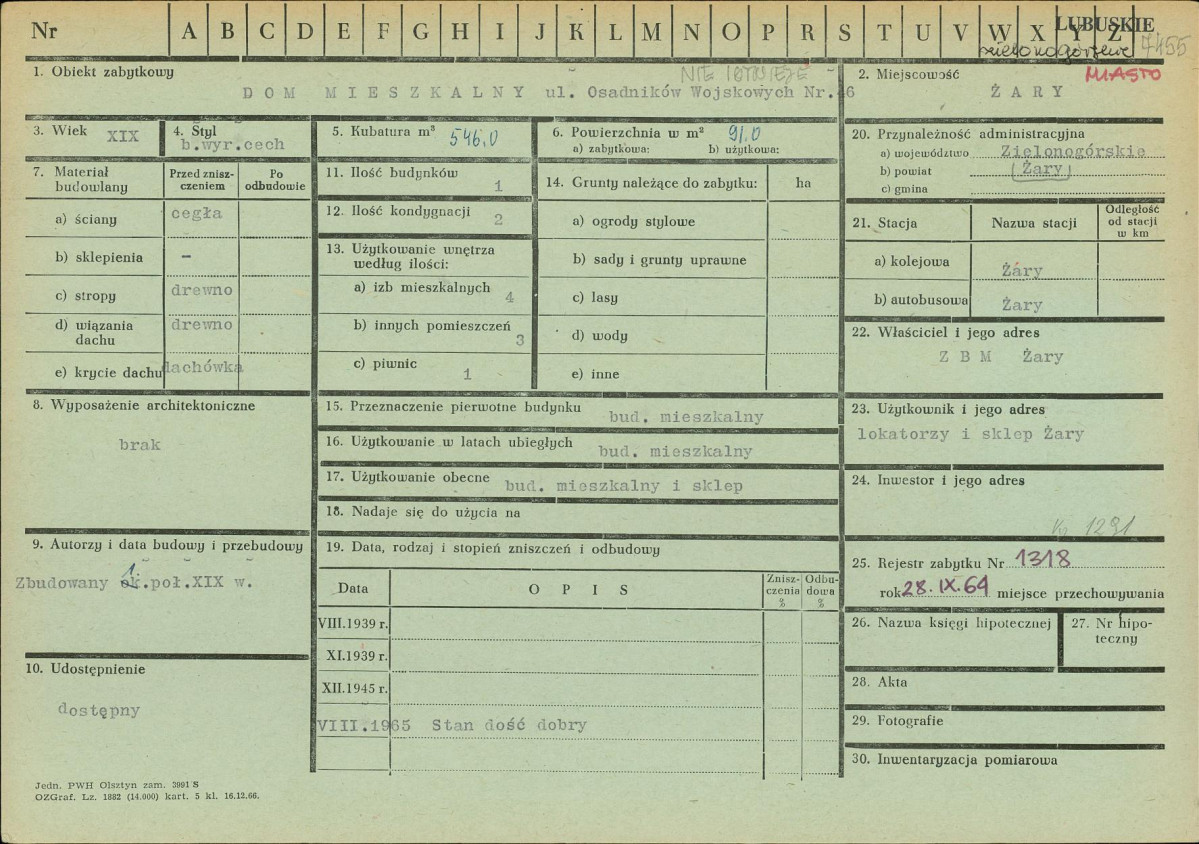 Nr A B C D E F G H I J K L M N O P R S T U V W X Y Z
LUBUSKIE
zielonogórskie 7455
1. Obiekt zabytkowy
NIE ISTNIEJE
DOM MIESZKALNY ul. Osadników Wojskowych Nr. 6
2. Miejscowość
MIASTO
ŻARY
3. Wiek XIX
4. Styl
b.wyr.cech
5. Kubatura m³ 546,0
6. Powierzchnia w m² 91,0
a) zabytkowa: b) użytkowa:
7. Materiał budowlany
Przed znisz-
czeniem
Po
odbudowie
a) ściany cegła
b) sklepienia –
c) stropy drewno
d) wiązania
dachu drewno
e) krycie dachu dachówka
8. Wyposażenie architektoniczne
brak
9. Autorzy i data budowy i przebudowy
Zbudowany ok. 1.poł.XIX w.
10. Udostępnienie
dostępny
11. Ilość budynków 1
12. Ilość kondygnacji 2
13. Użytkowanie wnętrza
według ilości:
a) izb mieszkalnych 4
b) innych pomieszczeń 3
c) piwnic 1
14. Grunty należące do zabytku: ha
a) ogrody stylowe
b) sady i grunty uprawne
c) lasy
d) wody
e) inne
15. Przeznaczenie pierwotne budynku bud. mieszkalny
16. Użytkowanie w latach ubiegłych bud. mieszkalny
17. Użytkowanie obecne bud. mieszkalny i sklep
18. Nadaje się do użycia na
19. Data, rodzaj i stopień zniszczeń i odbudowy
Data OPIS
Znisz-
czenia
%
Odbu-
dowa
%
VIII.1939 r.
XI.1939 r.
XII.1945 r.
VIII.1965 Stan dość dobry
20. Przynależność administracyjna
a) województwo Zielonogórskie
b) powiat Żary
c) gmina
21. Stacja Nazwa stacji
Odległość
od stacji
w km
a) kolejowa Żary
b) autobusowa Żary
22. Właściciel i jego adres
Z B M Żary
23. Użytkownik i jego adres
lokatorzy i sklep Żary
24. Inwestor i jego adres
1291
25. Rejestr zabytku Nr 1318
rok 28.IX.64 miejsce przechowywania
26. Nazwa księgi hipotecznej
27. Nr hipo-
teczny
28. Akta
29. Fotografie
30. Inwentaryzacja pomiarowa
Jedn. PWH Olsztyn zam. 3991 S
OZGraf. Lz. 1882 (14.000) kart. 5 kl. 16.12.66.